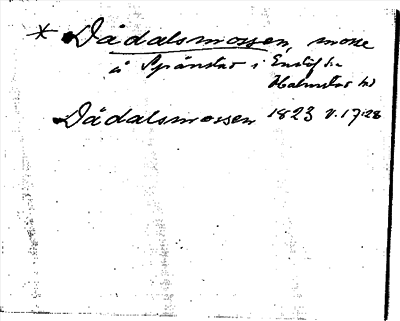 * Dådalsmossen, mosse
å Spånstad i Enslöfs sn
Halmstad hd
Dådalsmossen 1823 V. 17:28